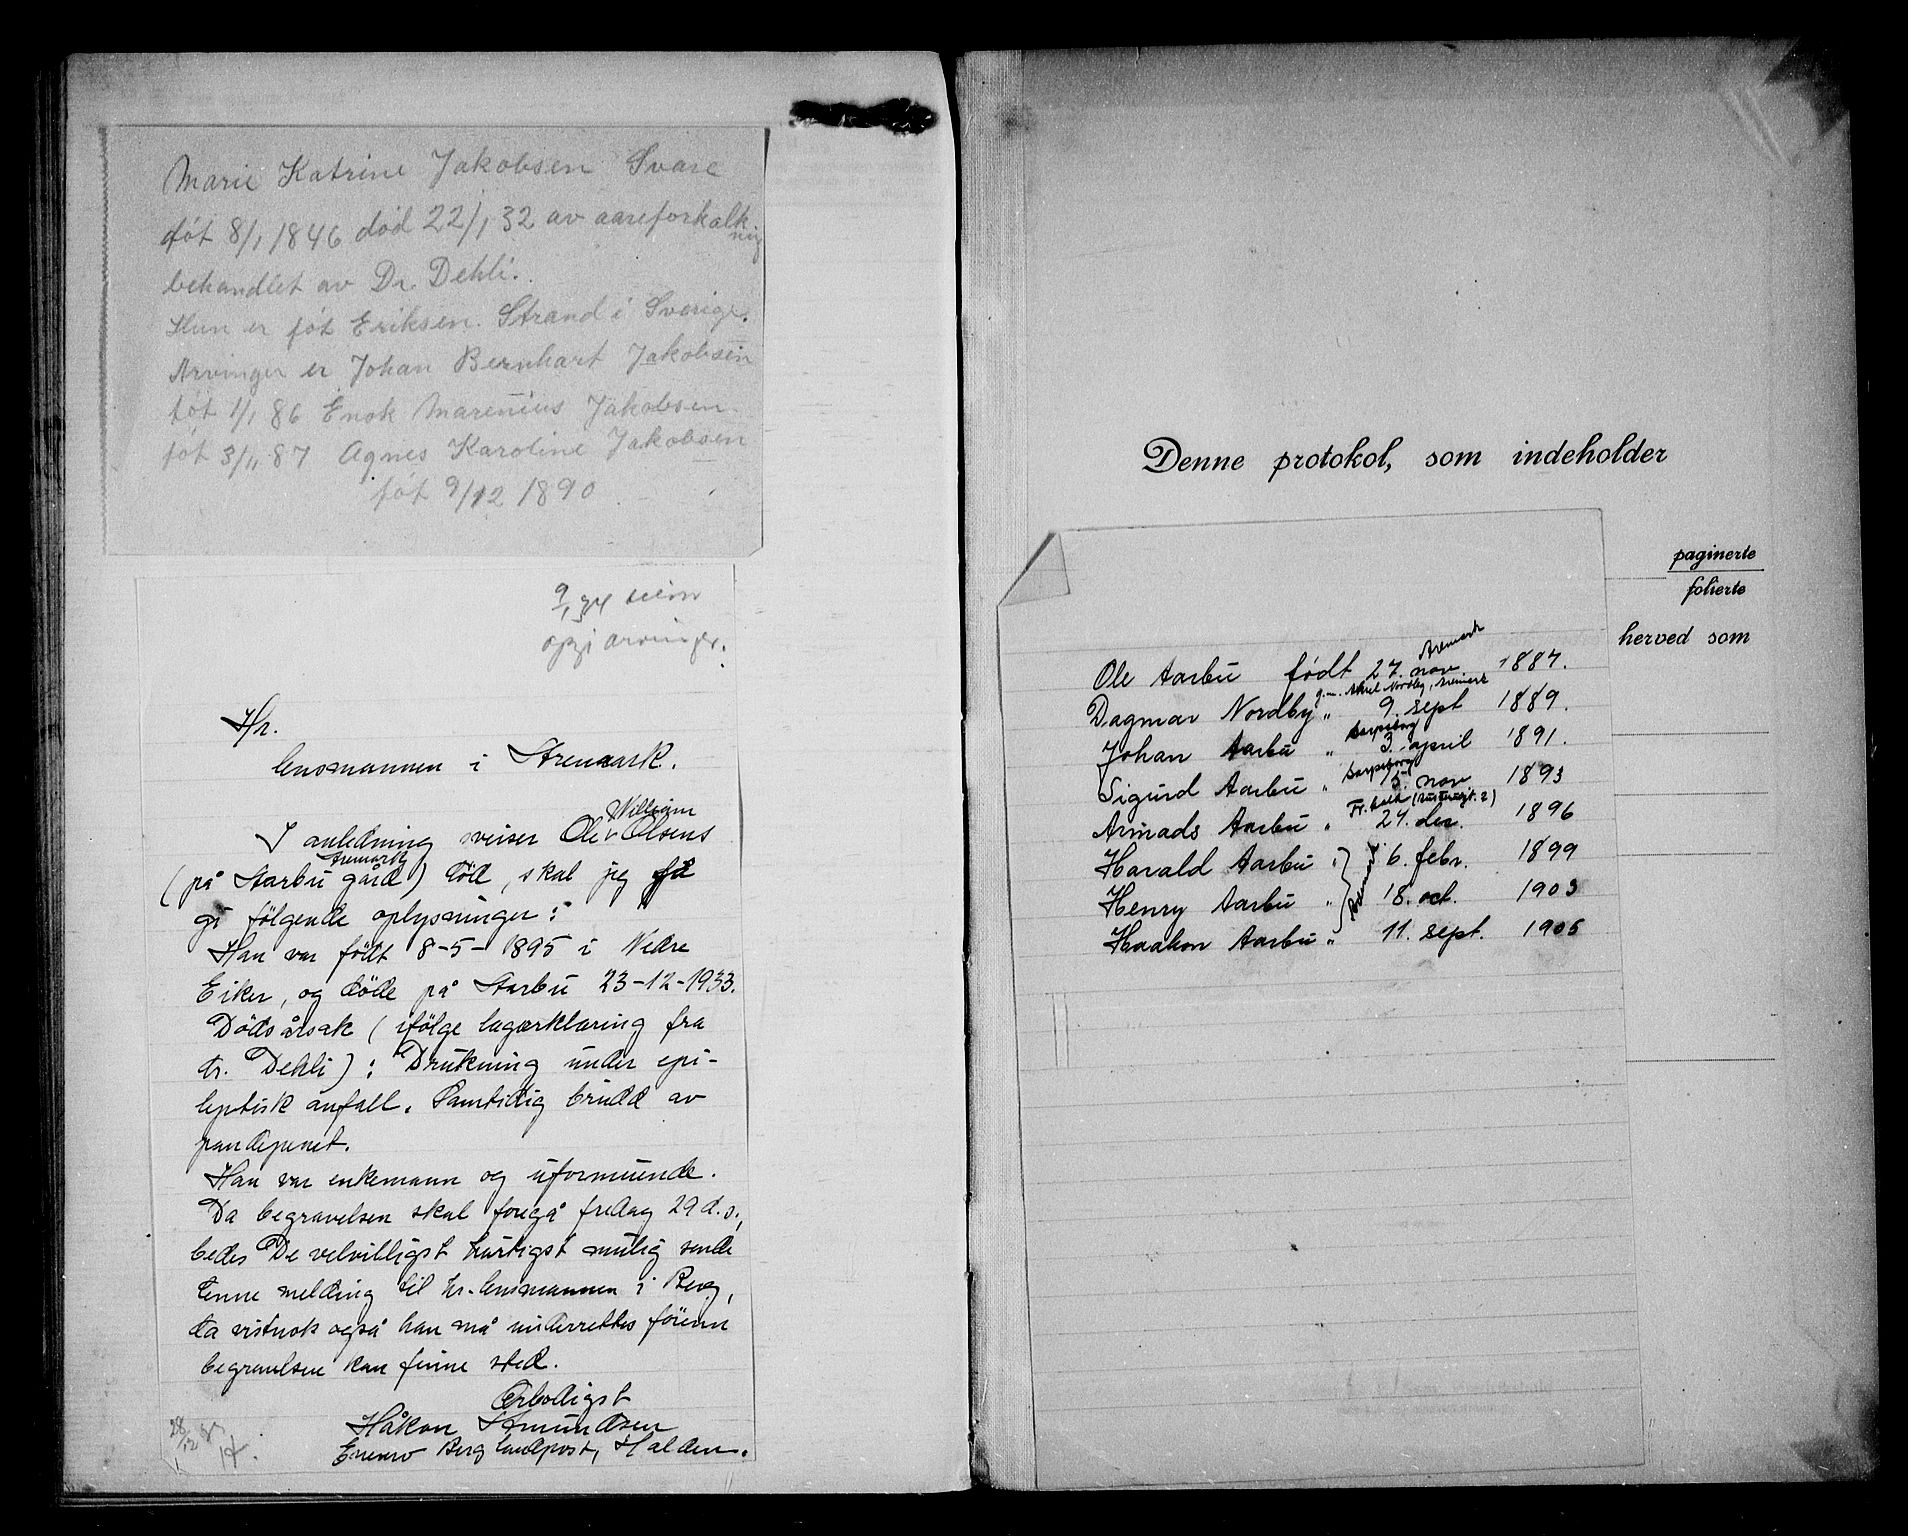 Marie Katrine Jakobsen Svare
föt 8/1 1846 död 22/1 32 av aareforkalk
ning
behandlet av Dr. Dehli.
Hun er föt Eriksen. Strand i Sverige.
Arvinger er Johan Bernhart Jakobsen
föt 1/1 86 Enok Marenius Jakobsen
föt 3/11 87 Agnes Karoline Jakobsen
föt 9/12 1890
9/1 34
arvinger.
Hr.
lensmannen i Aremark.
William
I anledning Ole Olsens
Aremark
(på Aarbu gård) död, skal jeg
gi fölgende oplysninger:
Han var födt 8-5-1895 i Nedre
Eiker, og döde på Aarbu 23-12-1933.
Dödsårsak (ifölge lægerklæring fra
dr. Dehli): Drukning under epi-
leptisk anfall. Samtidig brudd av
pandepenet.
Han var enkemann og uformuende.
Da begravelsen skal foregå fredag 29 d.s.,
bedes De velvilligst hurtigst mulig sende
denne melding til hr. lensmannen i Berg,
da vistnok også han må underrettes förenn
begravelsen kan finne sted.
Ærbödigst
Håkon Amundsen
Berg landpost, Halden.
28/12
Denne protokol, som indeholder
paginerte
folierte
herved som
Aremark
Ole Aarbu födt 27. nov 1887.
g.m. Nordby, Aremark
Dagmar Nordby " 9. sept 1889.
Sarpsborg
Johan Aarbu " 3. april 1891.
Sarpsborg
Sigurd Aarbu " 15. nov 1893
Fr.hald
Armads Aarbu " 27. des. 1896
Harald Aarbu " 6. febr. 1899
Aremark
Henry Aarbu " 18. oct. 1903
Haakon Aarbu " 11. sept. 1905